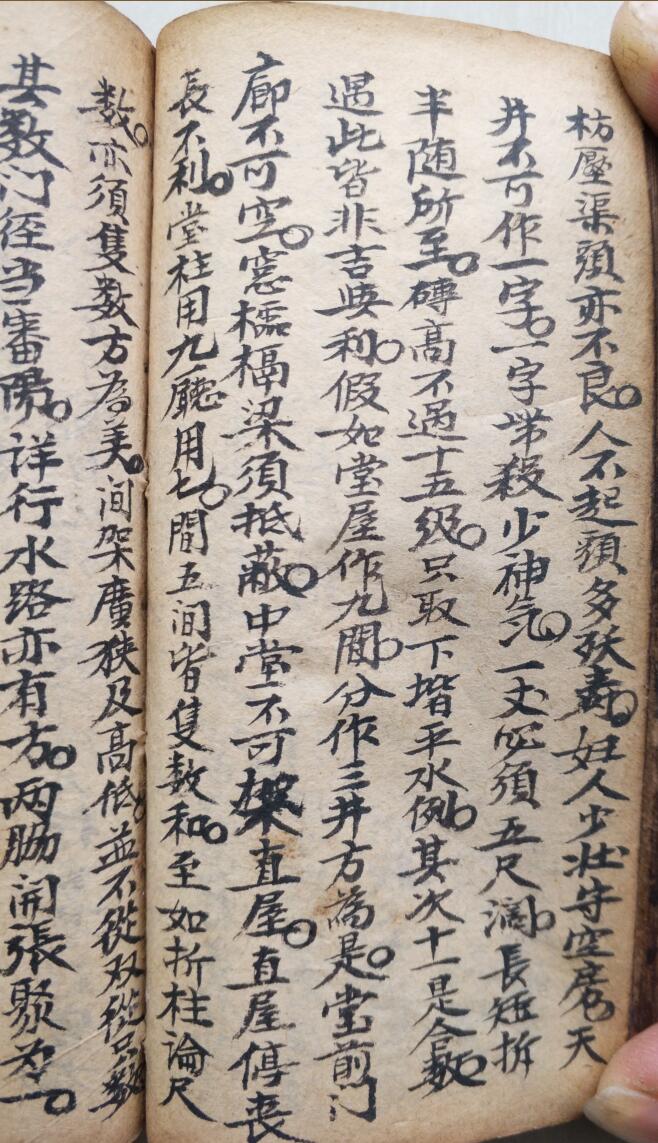 枋壓渠頭亦不良。人不起頭多殀壽。妇人少壮守空房。天
井不可作一字。一字帯殺少神气。一丈必須五尺濶。長短折
半随所至。磚高不過十五級。只取下堦平水例。其次十一是合数。
遇此皆非吉與利。假如堂屋作九間。分作三井方為是。堂前门
廊不可空。窓槅梁須抵蔽。中堂不可架直屋。直屋停丧
長不利。堂柱用九廳用七。間五间皆隻数和。至如折柱論尺
数。亦須隻数方為美。间架廣狭及高低。並不從双從只数
其数门徑当審陽。详行水路亦有方。两肠開張聚为一。